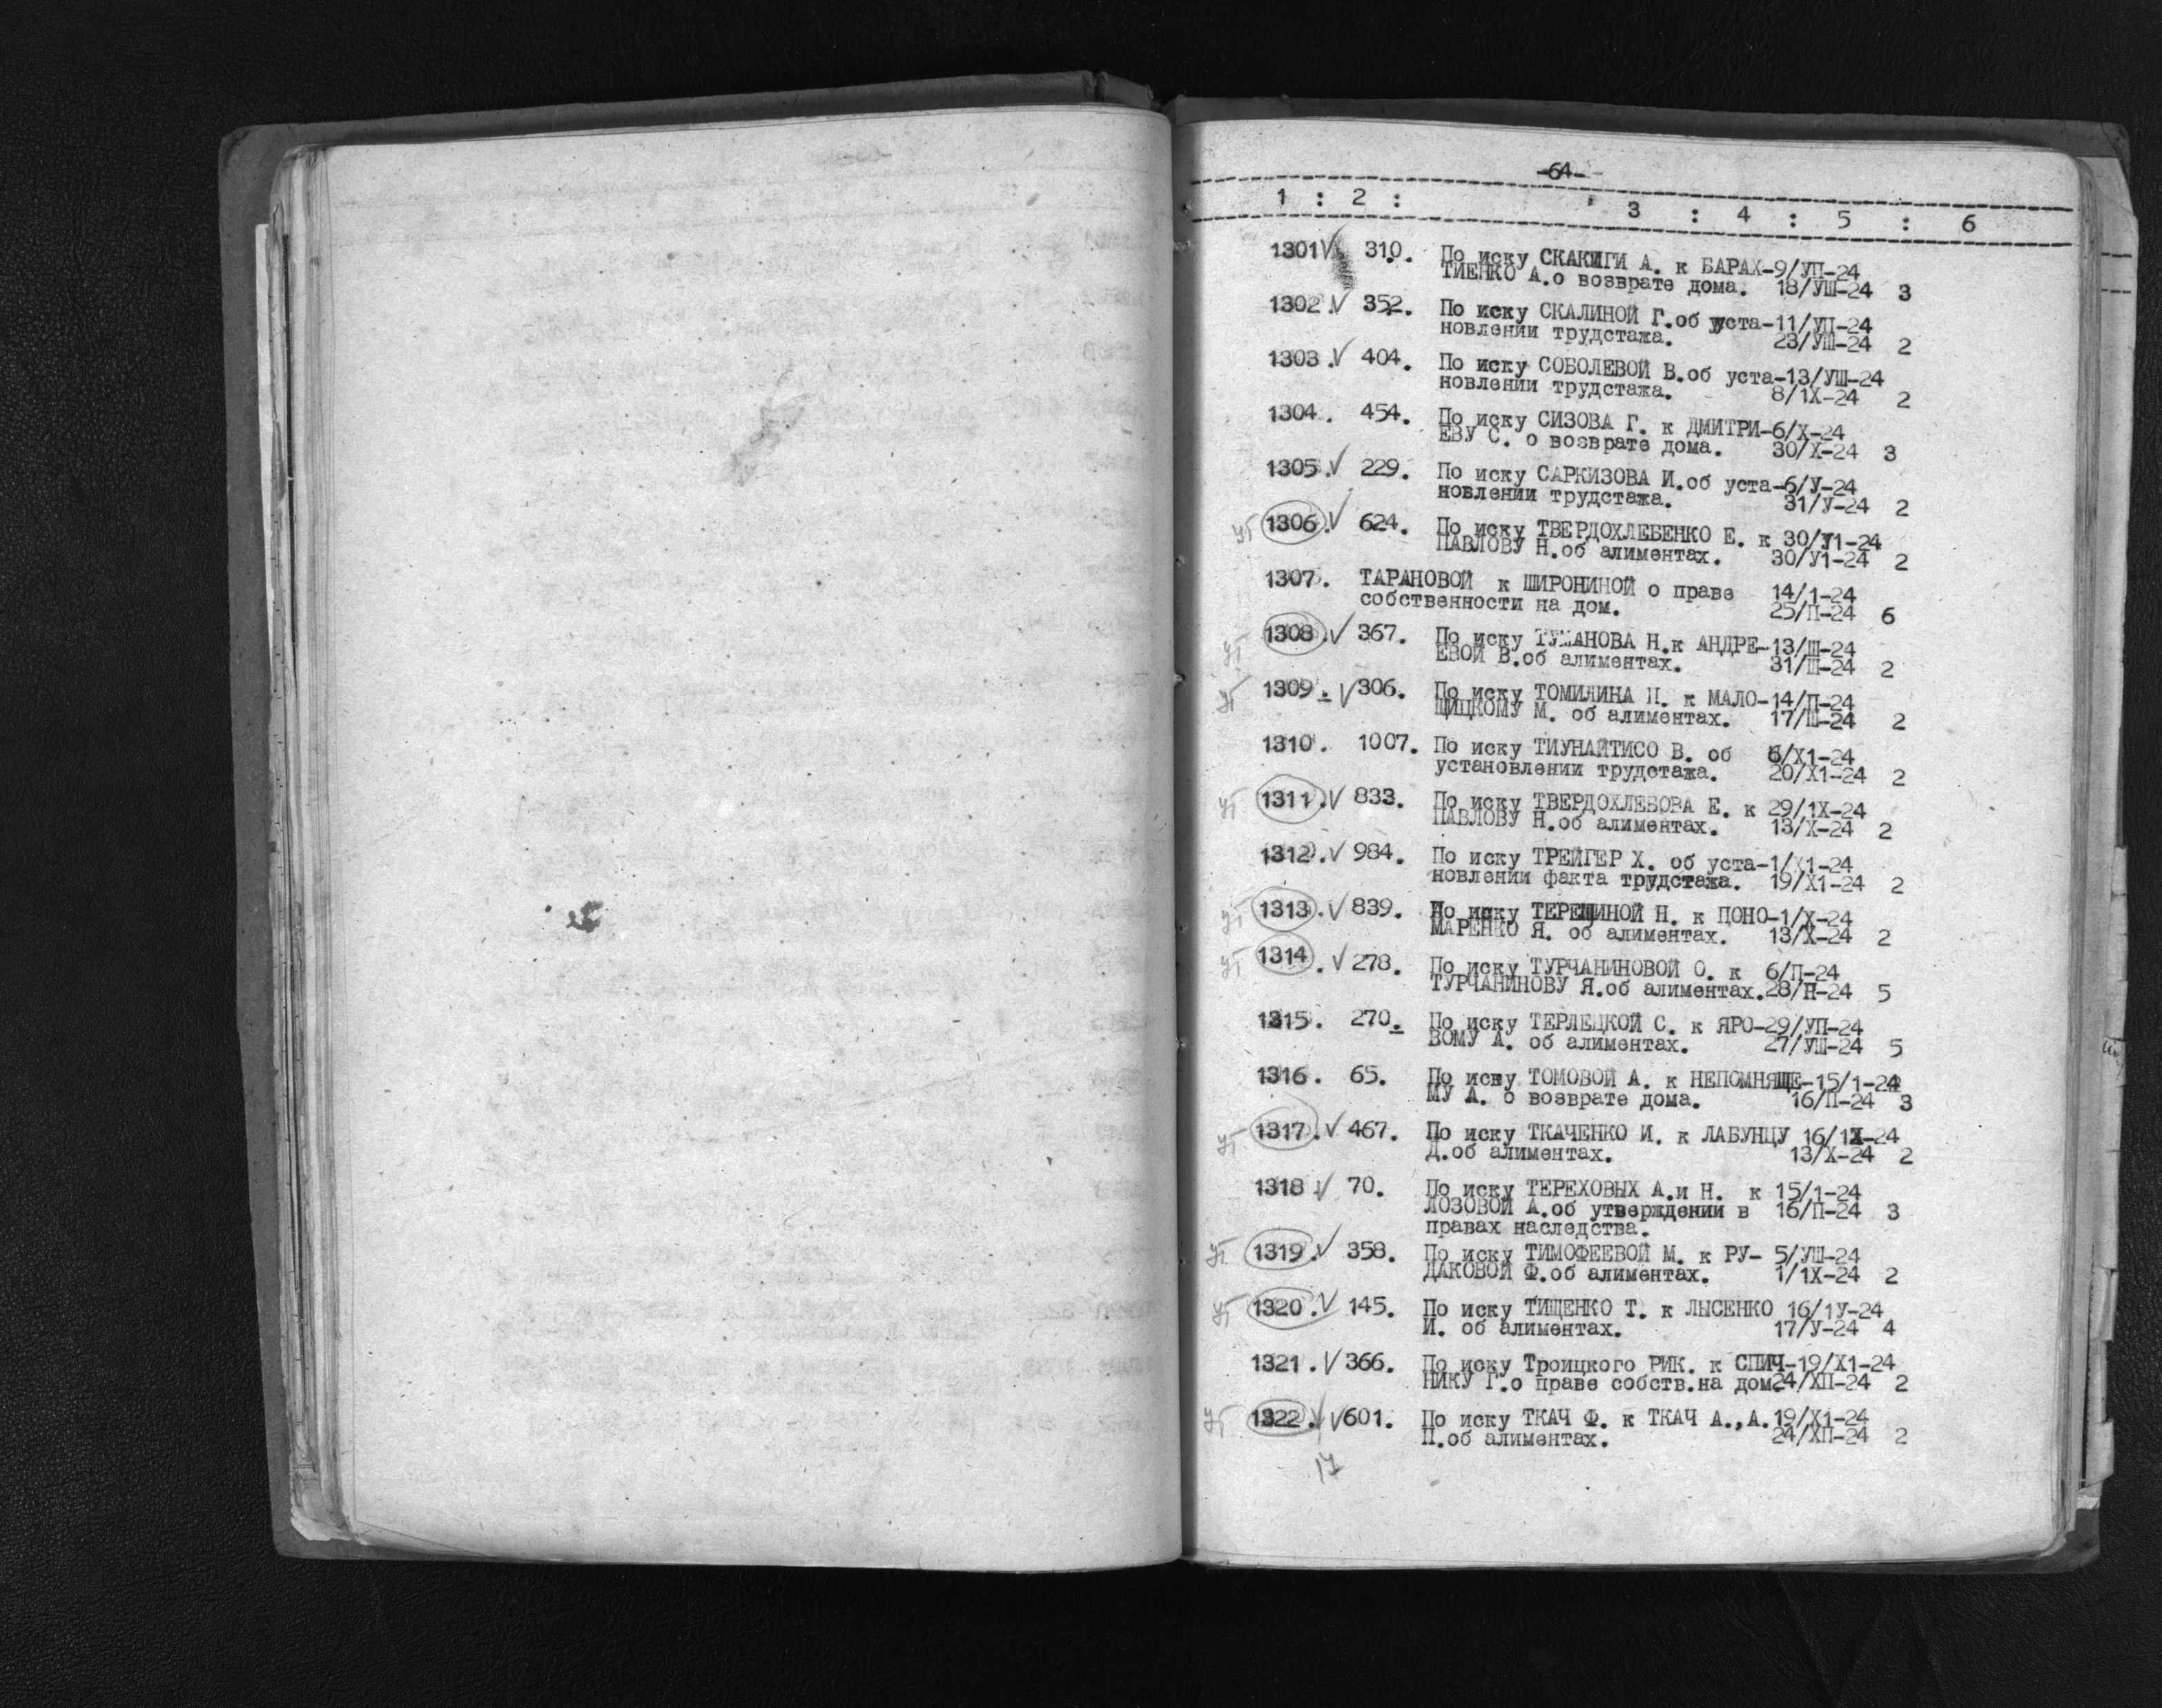 -64-
1 : 2 : 3 : 4 : 5 : 6
1301 V 310. По иску СКАКИГИ А. к БАРАХ-9/УП-24
ТИЕНКО А.о возврате дома. 18/УШ-24 3
1302.V 352. По иску СКАЛИНОЙ Г.об уста-11/УП-24
новлении трудстажа. 23/УШ-24 2
1303.V 404. По иску СОБОЛЕВОЙ В.об уста-13/УШ-24
новлении трудстажа. 8/1Х-24 2
1304. 454. По иску СИЗОВА Г. к ДМИТРИ-6/Х-24
ЕВУ С. о возврате дома. 30/Х-24 3
1305.V 229. По иску САРКИЗОВА И.об уста-6/У-24
новлении трудстажа. 31/У-24 2
уг 1306.V 624. По иску ТВЕРДОХЛЕБЕНКО Е. к 30/У1-24
ПАВЛОВУ Н.об алиментах. 30/У1-24 2
1307. ТАРАНОВОЙ к ШИРОНИНОЙ о праве 14/1-24
собственности на дом. 25/П-24 6
уг 1308.V 367. По иску ТУМАНОВА Н.к АНДРЕ-13/Ш-24
ЕВОЙ В.об алиментах. 31/Ш-24 2
уг 1309. V 306. По иску ТОМИЛИНА П. к МАЛО-14/П-24
ЩИЦКОМУ М. об алиментах. 17/Ш-24 2
1310. 1007. По иску ТИУНАЙТИСО В. об 6/Х1-24
установлении трудстажа. 20/Х1-24 2
уг 1311.V 833. По иску ТВЕРДОХЛЕБОВА Е. к 29/1Х-24
ПАВЛОВУ Н.об алиментах. 13/Х-24 2
1312.V 984. По иску ТРЕЙГЕР Х. об уста-1/Х1-24
новлении факта трудстажа. 19/Х1-24 2
уг 1313.V 839. По иску ТЕРЕШИНОЙ Н. к ПОНО-1/Х-24
МАРЕНКО Я. об алиментах. 13/Х-24 2
уг 1314.V 278. По иску ТУРЧАНИНОВОЙ О. к 6/П-24
ТУРЧАНИНОВУ Я.об алиментах.28/П-24 5
1315. 270. По иску ТЕРЛЕЦКОЙ С. к ЯРО-29/УП-24
ВОМУ А. об алиментах. 27/УШ-24 5
1316. 65. По иску ТОМОВОЙ А. к НЕПОМНЯЩЕ-15/1-24
МУ А. о возврате дома. 16/П-24 3
уг 1317.V 467. По иску ТКАЧЕНКО И. к ЛАБУНЦУ 16/1Х-24
Д.об алиментах. 13/Х-24 2
1318.V 70. По иску ТЕРЕХОВЫХ А.и Н. к 15/1-24
ЛОЗОВОЙ А.об утверждении в 16/П-24 3
правах наследства.
уг 1319.V 358. По иску ТИМОФЕЕВОЙ М. к РУ- 5/УШ-24
ДАКОВОЙ Ф.об алиментах. 1/1Х-24 2
уг 1320.V 145. По иску ТИЩЕНКО Т. к ЛЫСЕНКО 16/1У-24
И. об алиментах. 17/У-24 4
1321.V 366. По иску Троицкого РИК. к СПИЧ-19/Х1-24
НИКУ Г.о праве собств.на дом.24/ХП-24 2
уг 1322.V V 601. По иску ТКАЧ Ф. к ТКАЧ А.,А.19/Х1-24
П.об алиментах. 24/ХП-24 2
17